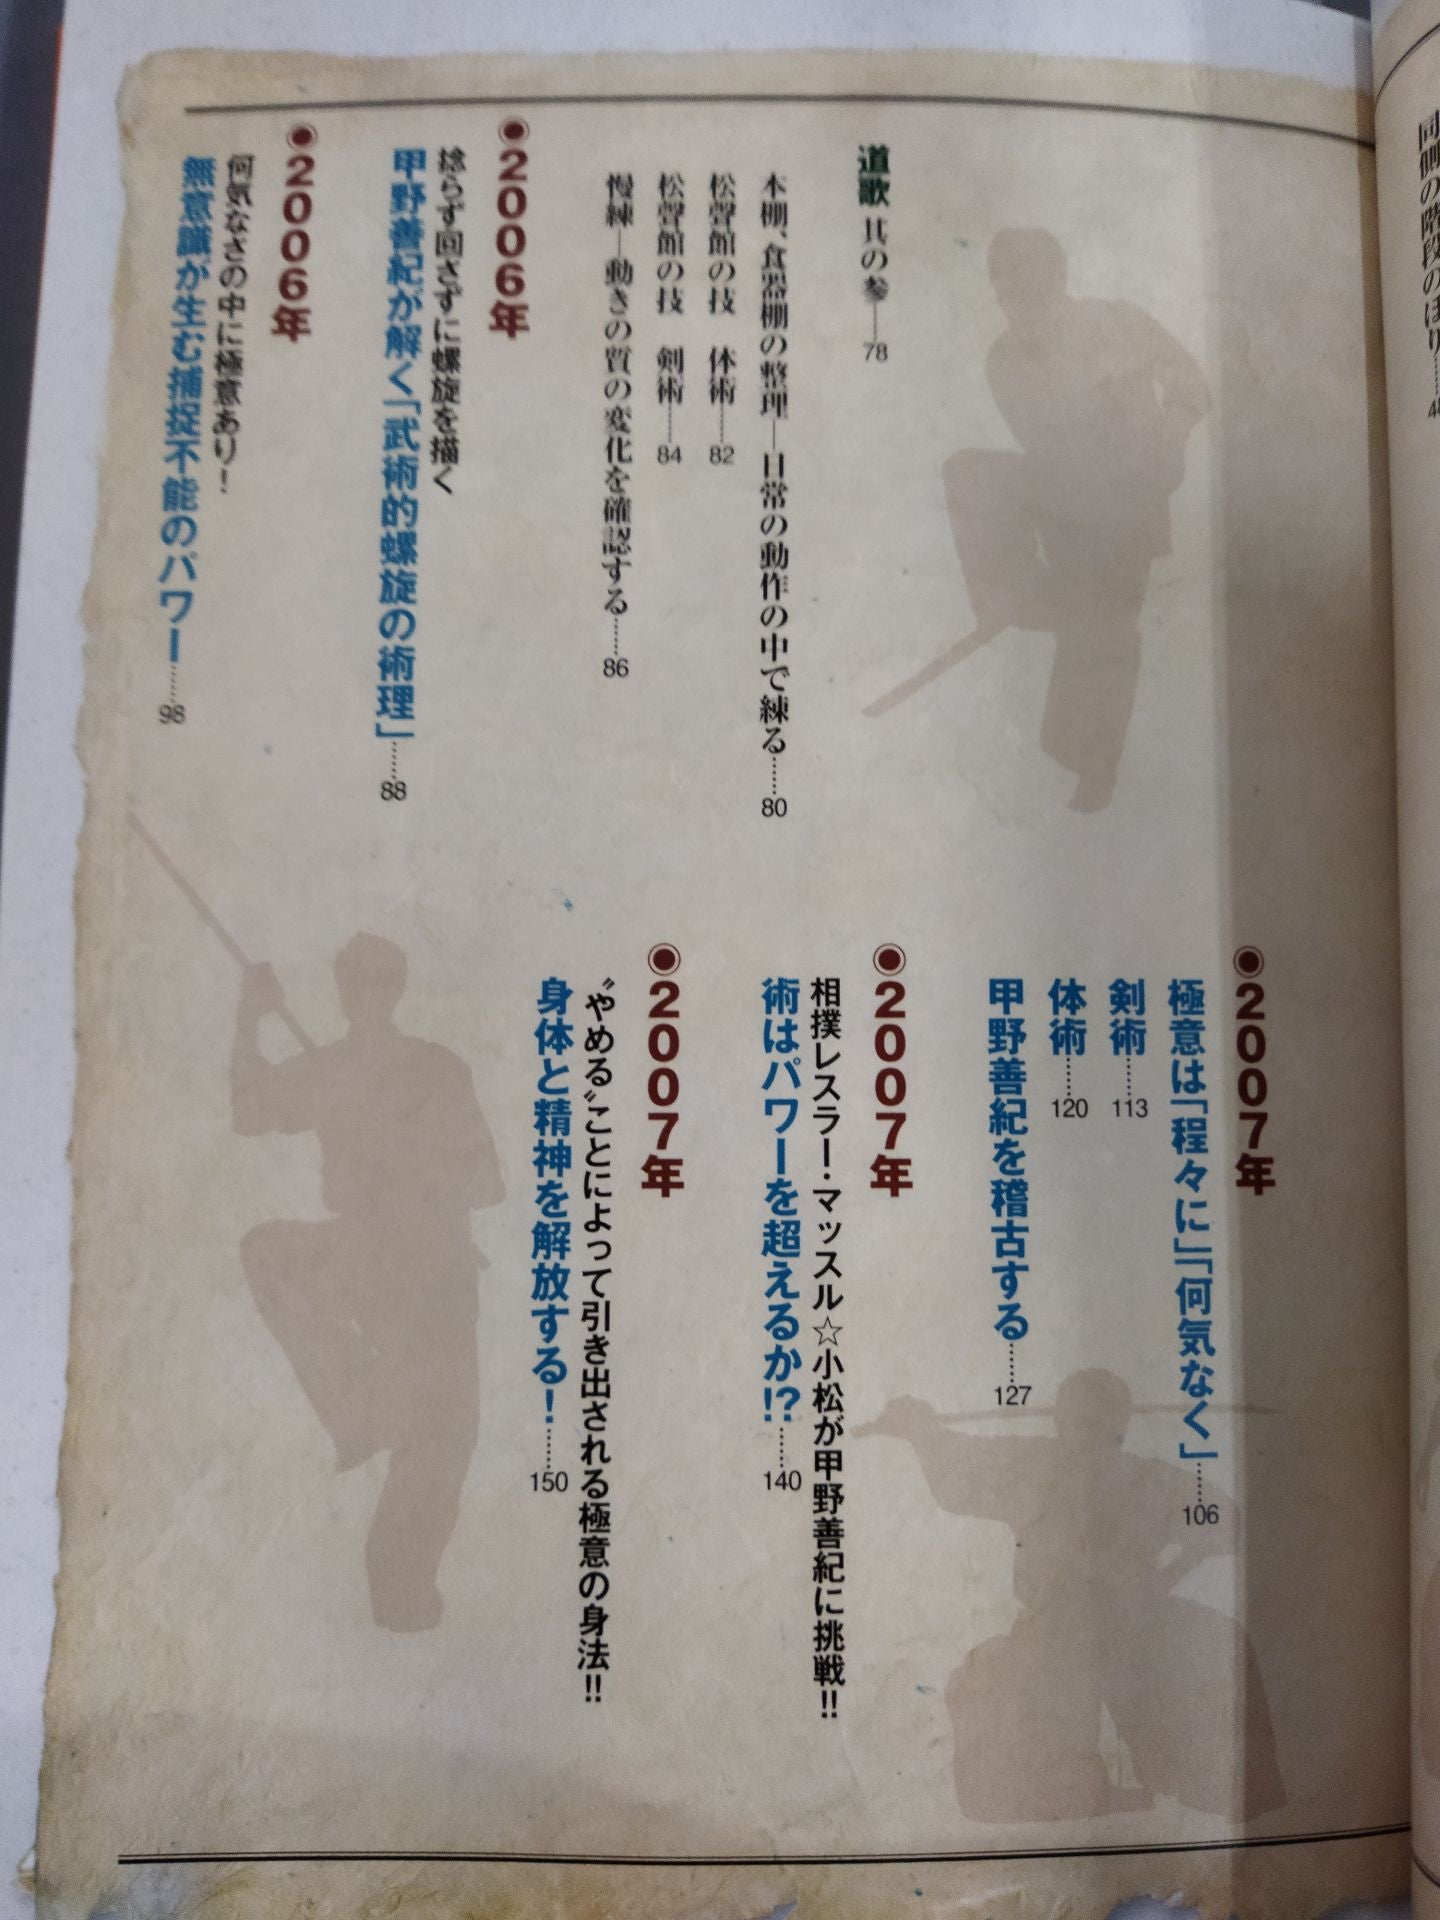 同側の階段のぼり……48
道歌 其の参……78
本棚、食器棚の整理―日常の動作の中で練る……80
松聲館の技 体術……82
松聲館の技 剣術……84
慢練―動きの質の変化を確認する……86
◉2006年
捻らず回さずに螺旋を描く
甲野善紀が解く「武術的螺旋の術理」……88
◉2006年
何気なさの中に極意あり!
無意識が生む捕捉不能のパワー……98
◉2007年
極意は「程々に」「何気なく」……106
剣術……113
体術……120
甲野善紀を稽古する……127
◉2007年
相撲レスラー・マッスル☆小松が甲野善紀に挑戦!!
術はパワーを超えるか!?……140
◉2007年
〝やめる〟ことによって引き出される極意の身法!!
身体と精神を解放する!……150